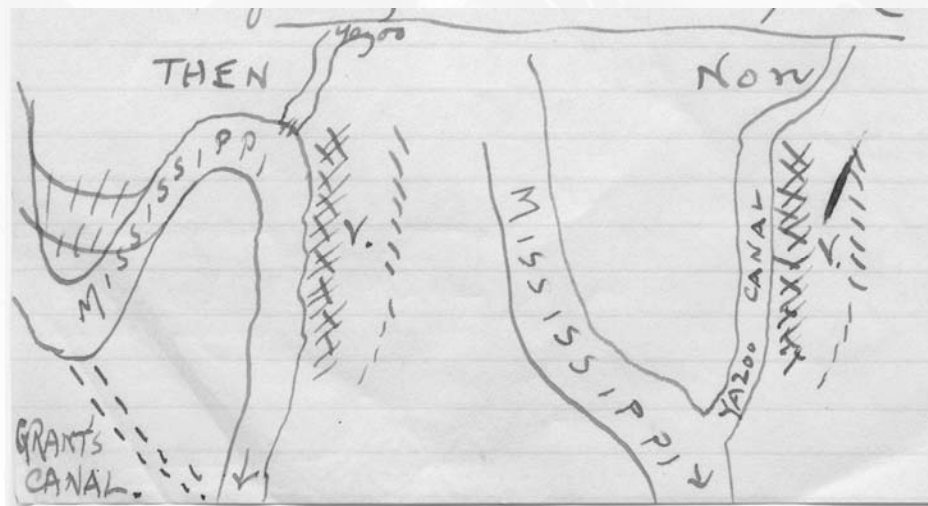 Yazoo
THEN
MISSISSIPPI
V.
GRANT'S
CANAL.
NOW
MISSISSIPPI
YAZOO CANAL
V.